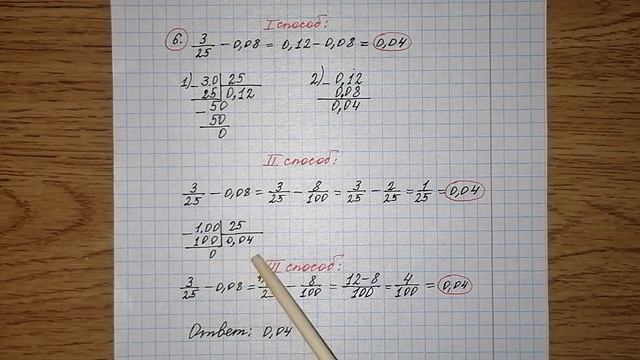 I способ:
6. 3/25 - 0,08 = 0,12 - 0,08 = 0,04
1) - 3.0 | 25    2) - 0,12
25 | 0,12    0,08
- 50    0,04
50
0
II способ:
3/25 - 0,08 = 3/25 - 8/100 = 3/25 - 2/25 = 1/25 = 0,04
- 1,00 | 25
100 | 0,04
0
III способ:
3/25 - 0,08 = - 8/100 = 12-8/100 = 4/100 = 0,04
Ответ: 0,04